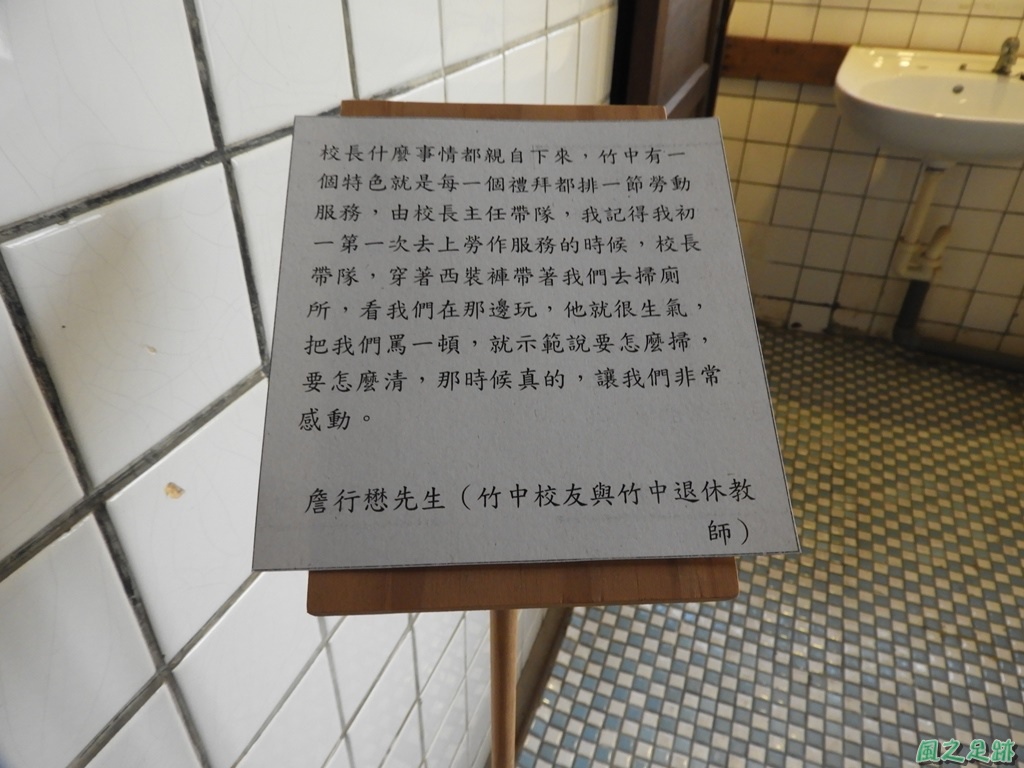 校長什麼事情都親自下來，竹中有一
個特色就是每一個禮拜都排一節勞動
服務，由校長主任帶隊，我記得我初
一第一次去上勞作服務的時候，校長
帶隊，穿著西裝褲帶著我們去掃廁
所，看我們在那邊玩，他就很生氣，
把我們罵一頓，就示範說要怎麼掃，
要怎麼清，那時候真的，讓我們非常
感動。
詹行懋先生（竹中校友與竹中退休教
師）
風之足跡